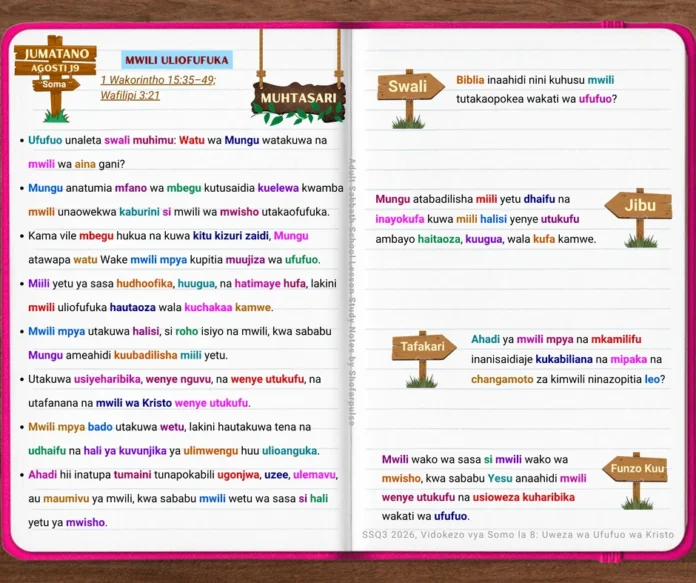 JUMATANO
AGOSTI 19
Soma
MWILI ULIOFUFUKA
1 Wakorintho 15:35–49;
Wafilipi 3:21
MUHTASARI
• Ufufuo unaleta swali muhimu: Watu wa Mungu watakuwa na
mwili wa aina gani?
• Mungu anatumia mfano wa mbegu kutusaidia kuelewa kwamba
mwili unaowekwa kaburini si mwili wa mwisho utakaofufuka.
• Kama vile mbegu hukua na kuwa kitu kizuri zaidi, Mungu
atawapa watu Wake mwili mpya kupitia muujiza wa ufufuo.
• Miili yetu ya sasa hudhoofika, huugua, na hatimaye hufa, lakini
mwili uliofufuka hautaoza wala kuchakaa kamwe.
• Mwili mpya utakuwa halisi, si roho isiyo na mwili, kwa sababu
Mungu ameahidi kuubadilisha miili yetu.
• Utakuwa usiyeharibika, wenye nguvu, na wenye utukufu, na
utafanana na mwili wa Kristo wenye utukufu.
• Mwili mpya bado utakuwa wetu, lakini hautakuwa tena na
udhaifu na hali ya kuvunjika ya ulimwengu huu ulioanguka.
• Ahadi hii inatupa tumaini tunapokabili ugonjwa, uzee, ulemavu,
au maumivu ya mwili, kwa sababu mwili wetu wa sasa si hali
yetu ya mwisho.
Adult Sabbath School Lesson Study Notes by Shofarpulse
Swali
Biblia inaahidi nini kuhusu mwili
tutakaopokea wakati wa ufufuo?
Mungu atabadilisha miili yetu dhaifu na
inayokufa kuwa miili halisi yenye utukufu
ambayo haitaoza, kuugua, wala kufa kamwe.
Jibu
Tafakari
Ahadi ya mwili mpya na mkamilifu
inanisaidiaje kukabiliana na mipaka na
changamoto za kimwili ninazopitia leo?
Mwili wako wa sasa si mwili wako wa
mwisho, kwa sababu Yesu anaahidi mwili
wenye utukufu na usioweza kuharibika
wakati wa ufufuo.
Funzo Kuu
SSQ3 2026, Vidokezo vya Somo la 8: Uweza wa Ufufuo wa Kristo